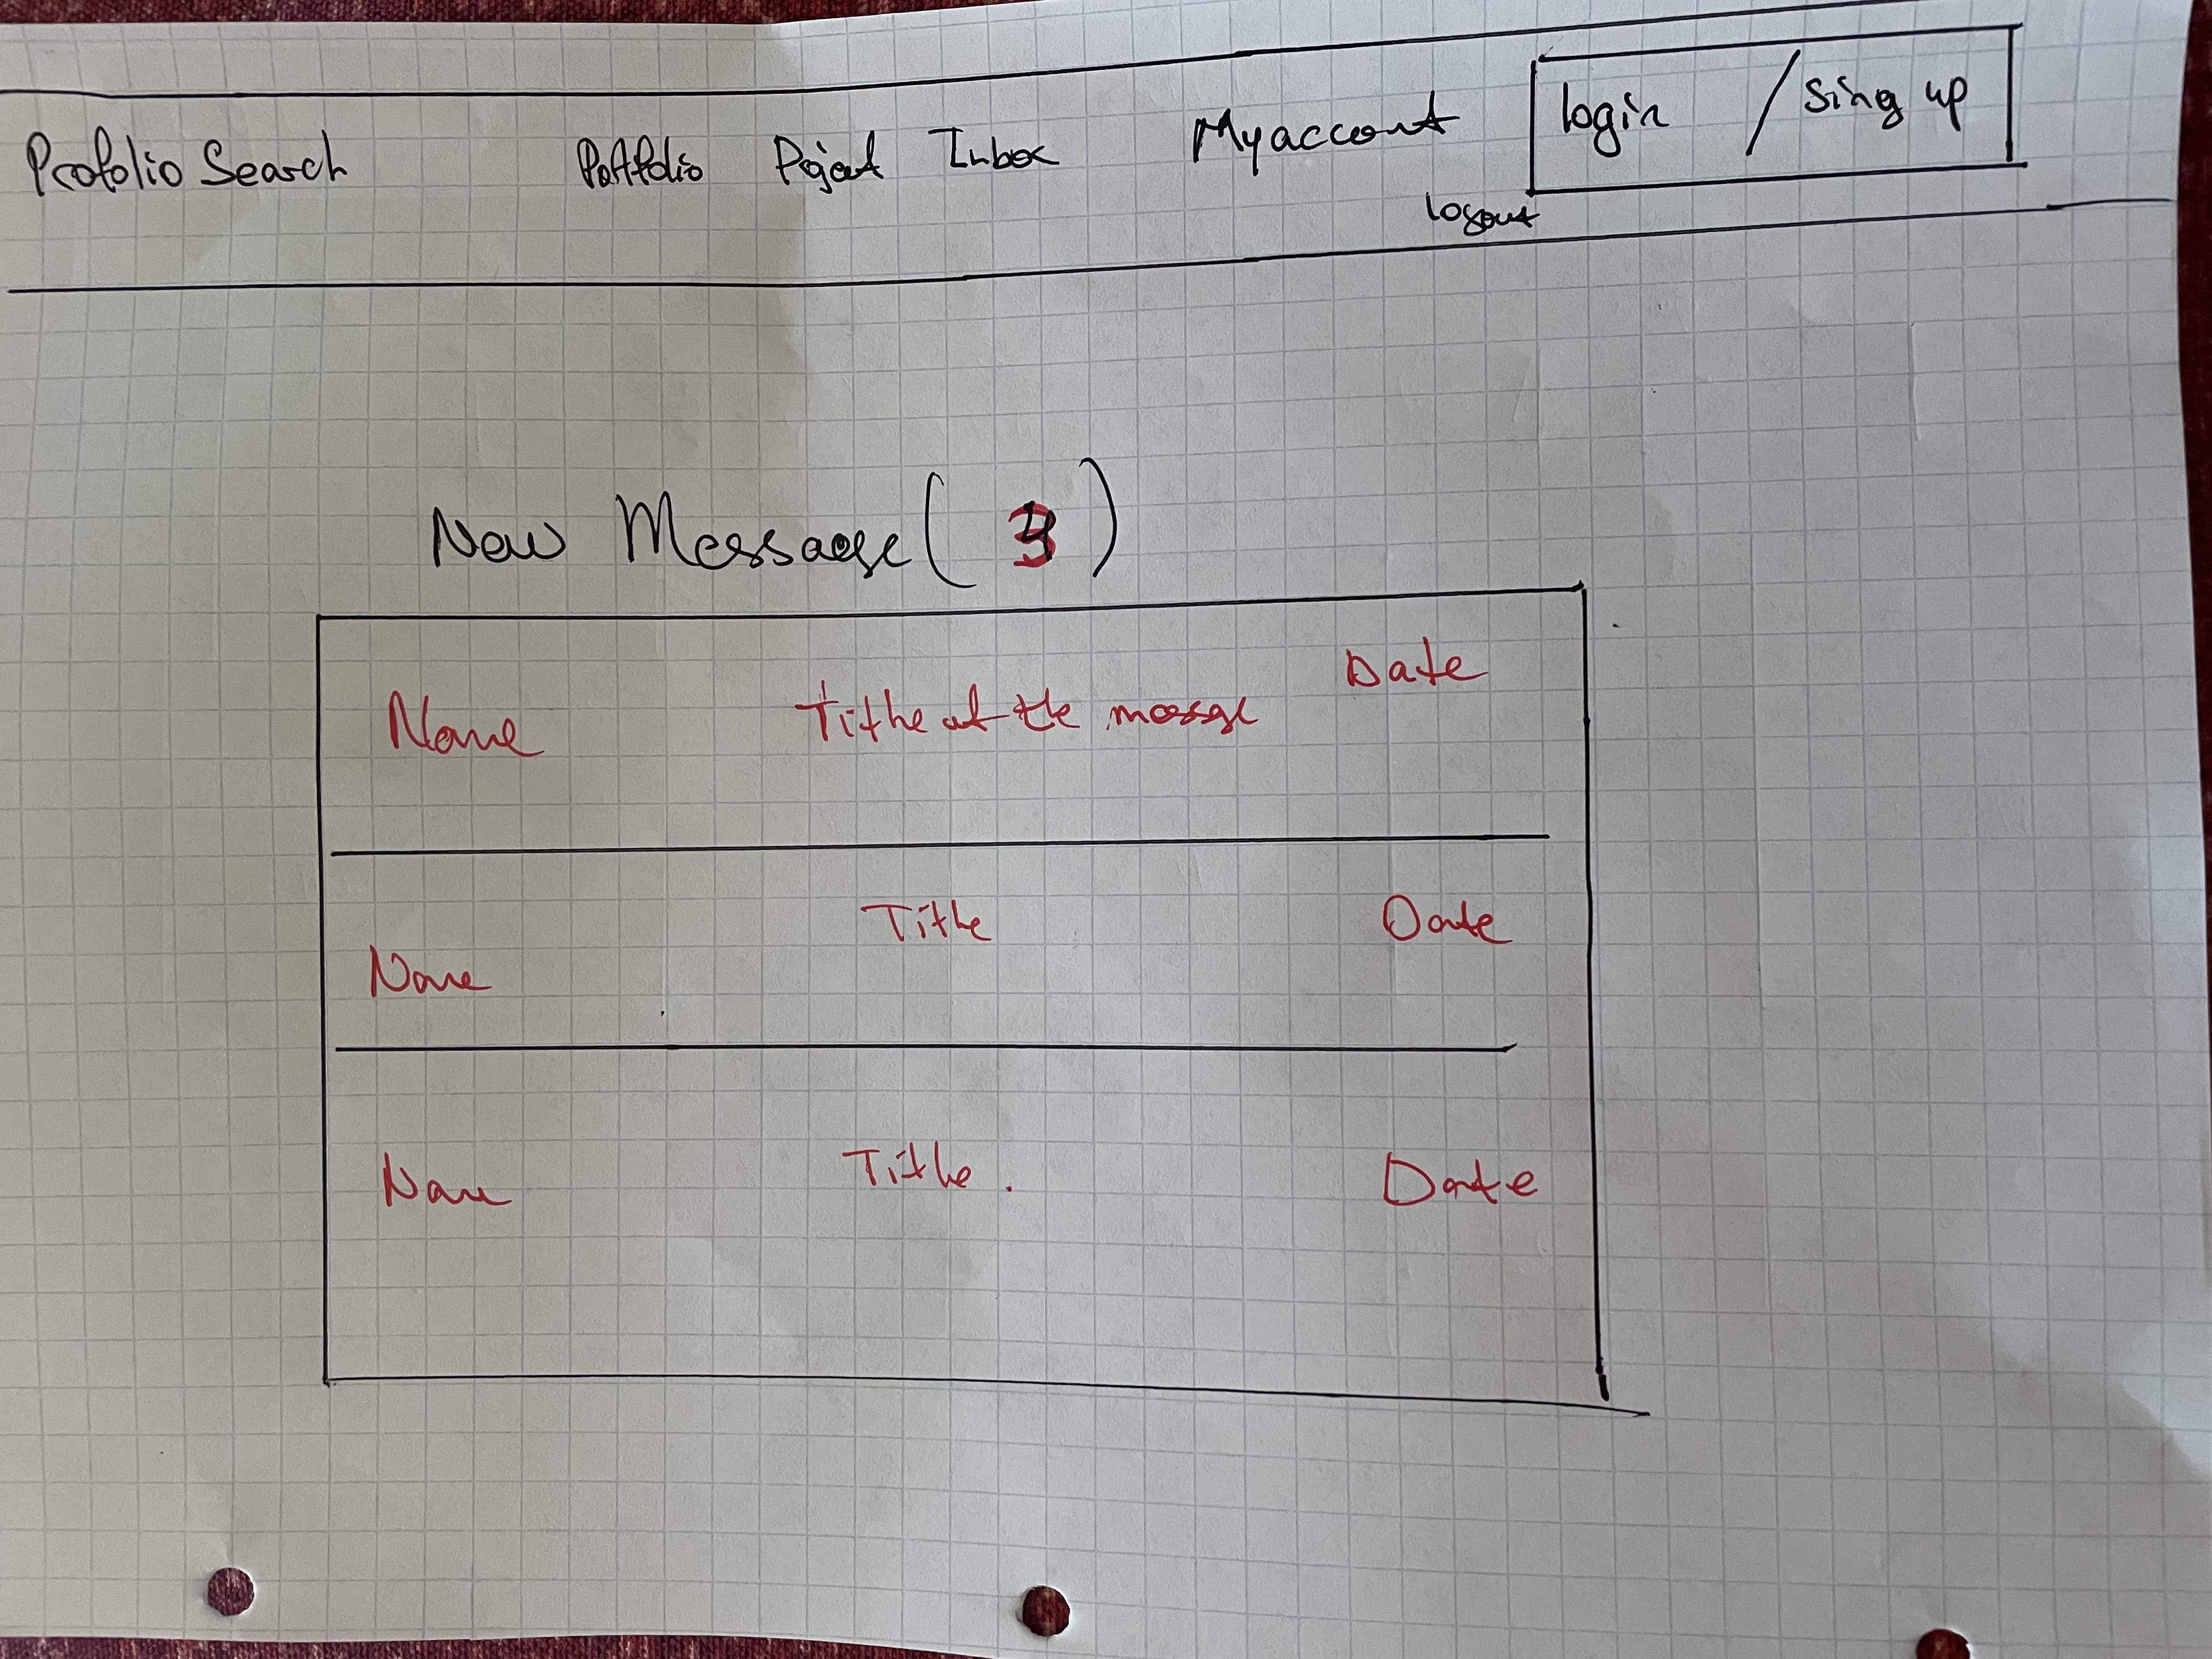 Profolio Search Portfolio Project Inbox My account login / Sing up
logout
New Message ( 3 )
Name Tithe of the message Date
Name Tithe Date
Name Tithe. Date